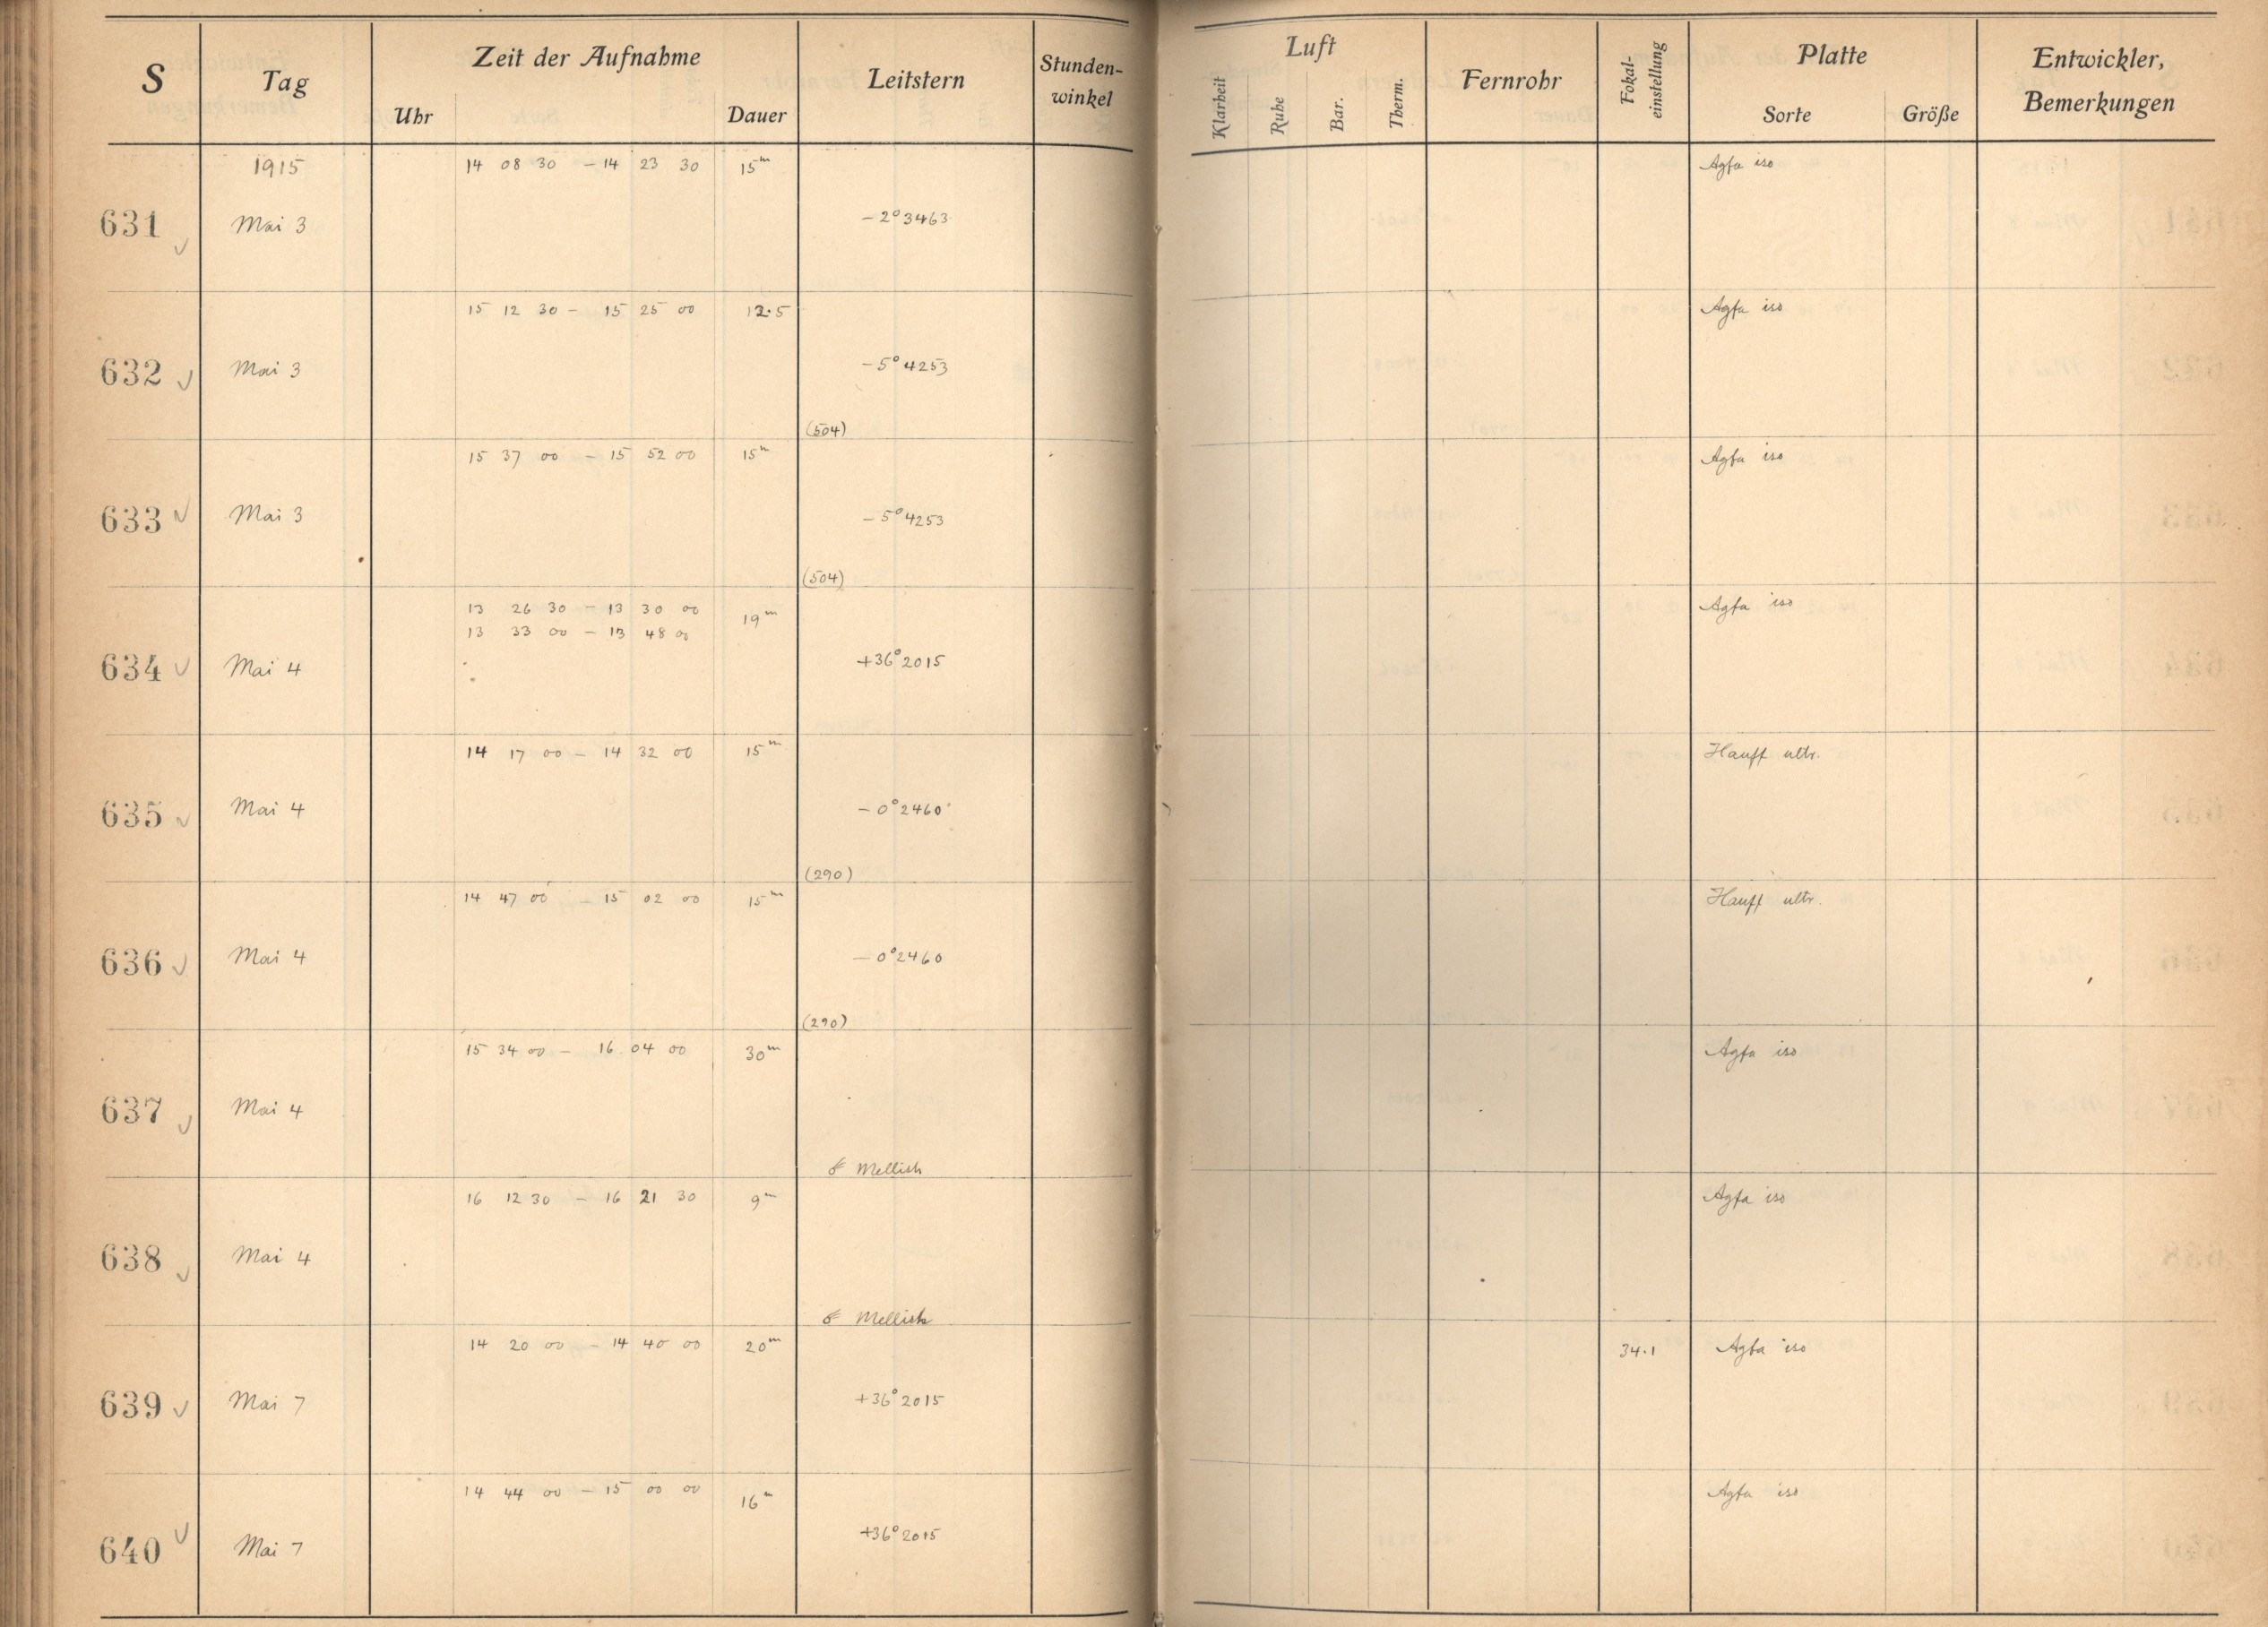 S Tag Zeit der Aufnahme Leitstern Stunden-winkel Luft Fernrohr Fokal-einstellung Platte Entwickler, Bemerkungen
Uhr Dauer Klarheit Ruhe Bar. Therm. Sorte Größe
1915 14 08 30 – 14 23 30 15m Agfa iso
631 Mai 3 – 2° 3463
15 12 30 – 15 25 00 12.5 Agfa iso
632 Mai 3 – 5° 4253
(504)
15 37 00 – 15 52 00 15m Agfa iso
633 Mai 3 – 5° 4253
(504)
13 26 30 – 13 30 00 19m Agfa iso
13 33 00 – 13 48 00
634 Mai 4 +36° 2015
14 17 00 – 14 32 00 15m Hauff ultr.
635 Mai 4 – 0° 2460
(290)
14 47 00 – 15 02 00 15m Hauff ultr.
636 Mai 4 – 0° 2460
(290)
15 34 00 – 16 04 00 30m Agfa iso
637 Mai 4
Mellish
16 12 30 – 16 21 30 9m Agfa iso
638 Mai 4
Mellish
14 20 00 – 14 40 00 20m 34.1 Agfa iso
639 Mai 7 +36° 2015
14 44 00 – 15 00 00 16m Agfa iso
640 Mai 7 +36° 2015